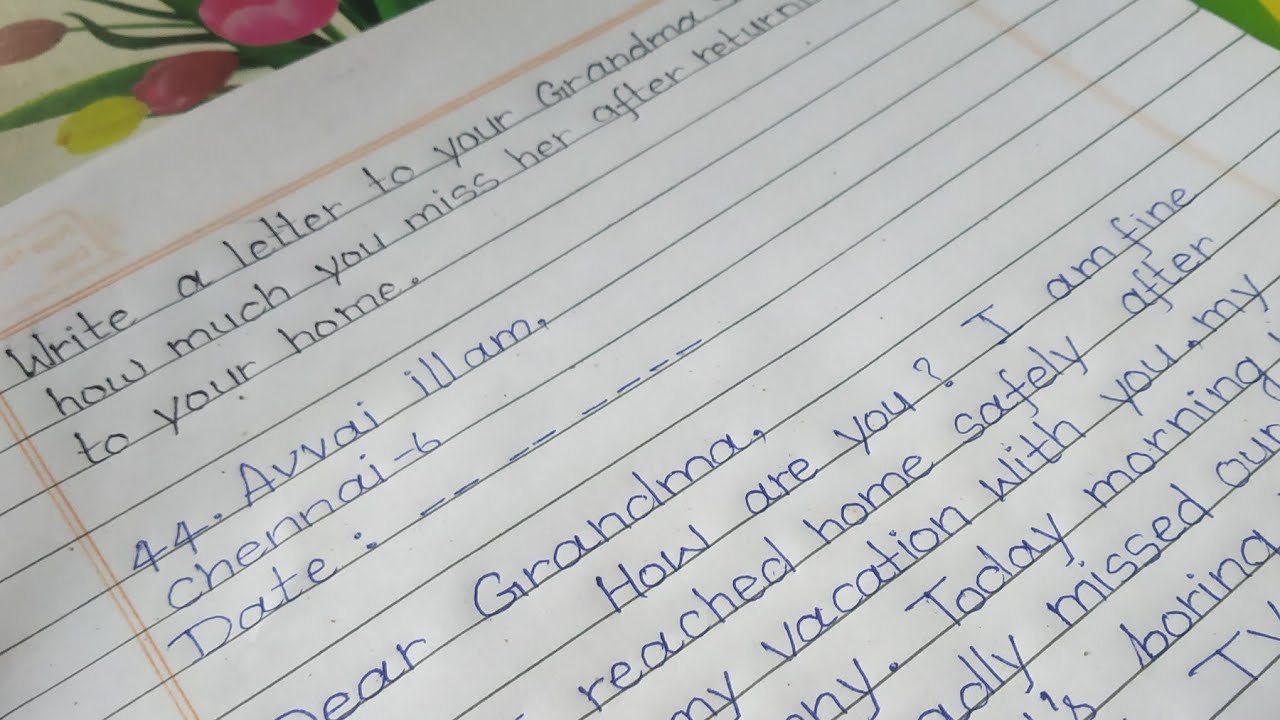 Write a letter to your Grandma
how much you miss her after
to your home.
44. Avvai illam,
Chennai-6
Date : -- -- ----
Dear Grandma,
How are you? I am fine
reached home safely after
my vacation with you. my
Today morning
missed our
boring